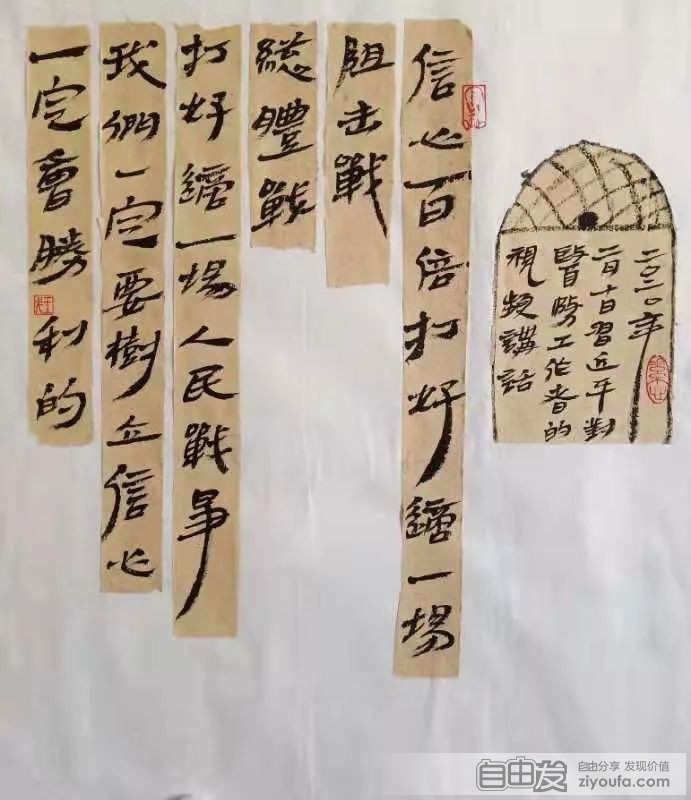 二〇二〇年
二月十日習近平對
醫務工作者的
視頻講話
信心百倍打好這一場
阻击戰
總體戰
打好這一場人民戰爭
我們一定要樹立信心
一定會勝利的
自由发
自由分享 发现价值
ziyoufa.com